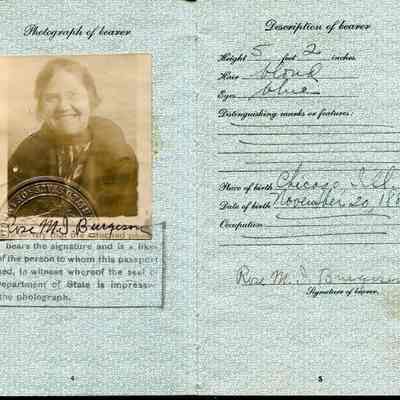 Photograph of bearer
Rose M. I Burgeson
bears the signature and is a like
of the person to whom this passport
ed, to witness whereof the seal o
Department of State is impress
the photograph.
4
Description of bearer
Height 5 feet 2 inches.
Hair blond
Eyes blue
Distinguishing marks or features:
Place of birth Chicago, Ill.
Date of birth November 20, 18
Occupation
Rose M. I Burgeson
Signature of bearer.
5